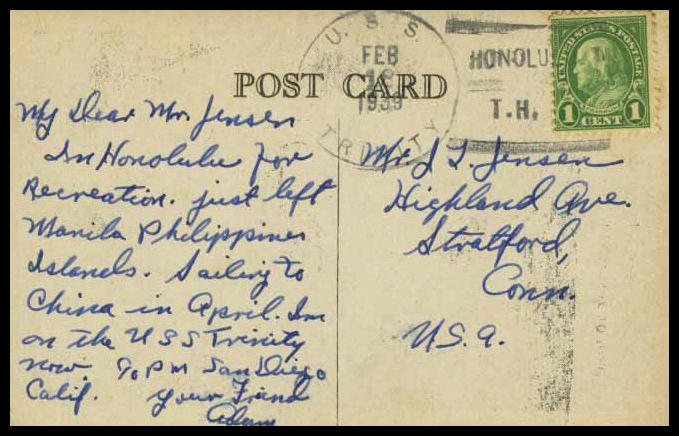 U.S.S.
FEB
18
1939
TRINITY
HONOLU
T.H.
UNITED STATES POSTAGE
1 CENT 1
POST CARD
My Dear Mr. Jensen
In Honolulu for
Recreation. just left
Manila Philippines
Islands. Sailing to
China in April. Im
on the USS Trinity
now. % P M San Diego
Calif. your Friend
Adam
Mr. J L. Jensen
Highland Ave.
Stratford,
Conn.
U.S.A.